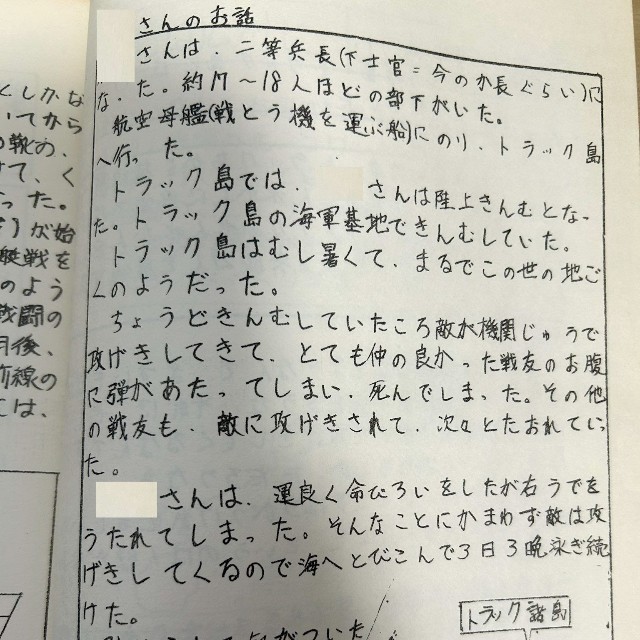 さんのお話
さんは、二等兵長(下士官=今のか長ぐらい)に
なった。約17～18人ほどの部下がいた。
航空母艦(戦とう機を運ぶ船)にのり、トラック島
へ行った。
トラック島では、さんは陸上きんむとなっ
た。トラック島の海軍基地できんむしていた。
トラック島はむし暑くて、まるでこの世の地ご
くのようだった。
ちょうどきんむしていたころ敵が機関じゅうで
攻げきしてきて、とても仲の良かった戦友のお腹
に弾があたってしまい、死んでしまった。その他
の戦友も、敵に攻げきされて、次々とたおれていっ
た。
さんは、運良く命びろいをしたが右うでを
うたれてしまった。そんなことにかまわず敵は攻
げきしてくるので海へとびこんで3日3晩泳ぎ続
けた。
トラック諸島
くしかな
いてから
の靴の、
けて、く
った。
が始
艇戦を
のよう
戦闘の
月後、
前線の
には、